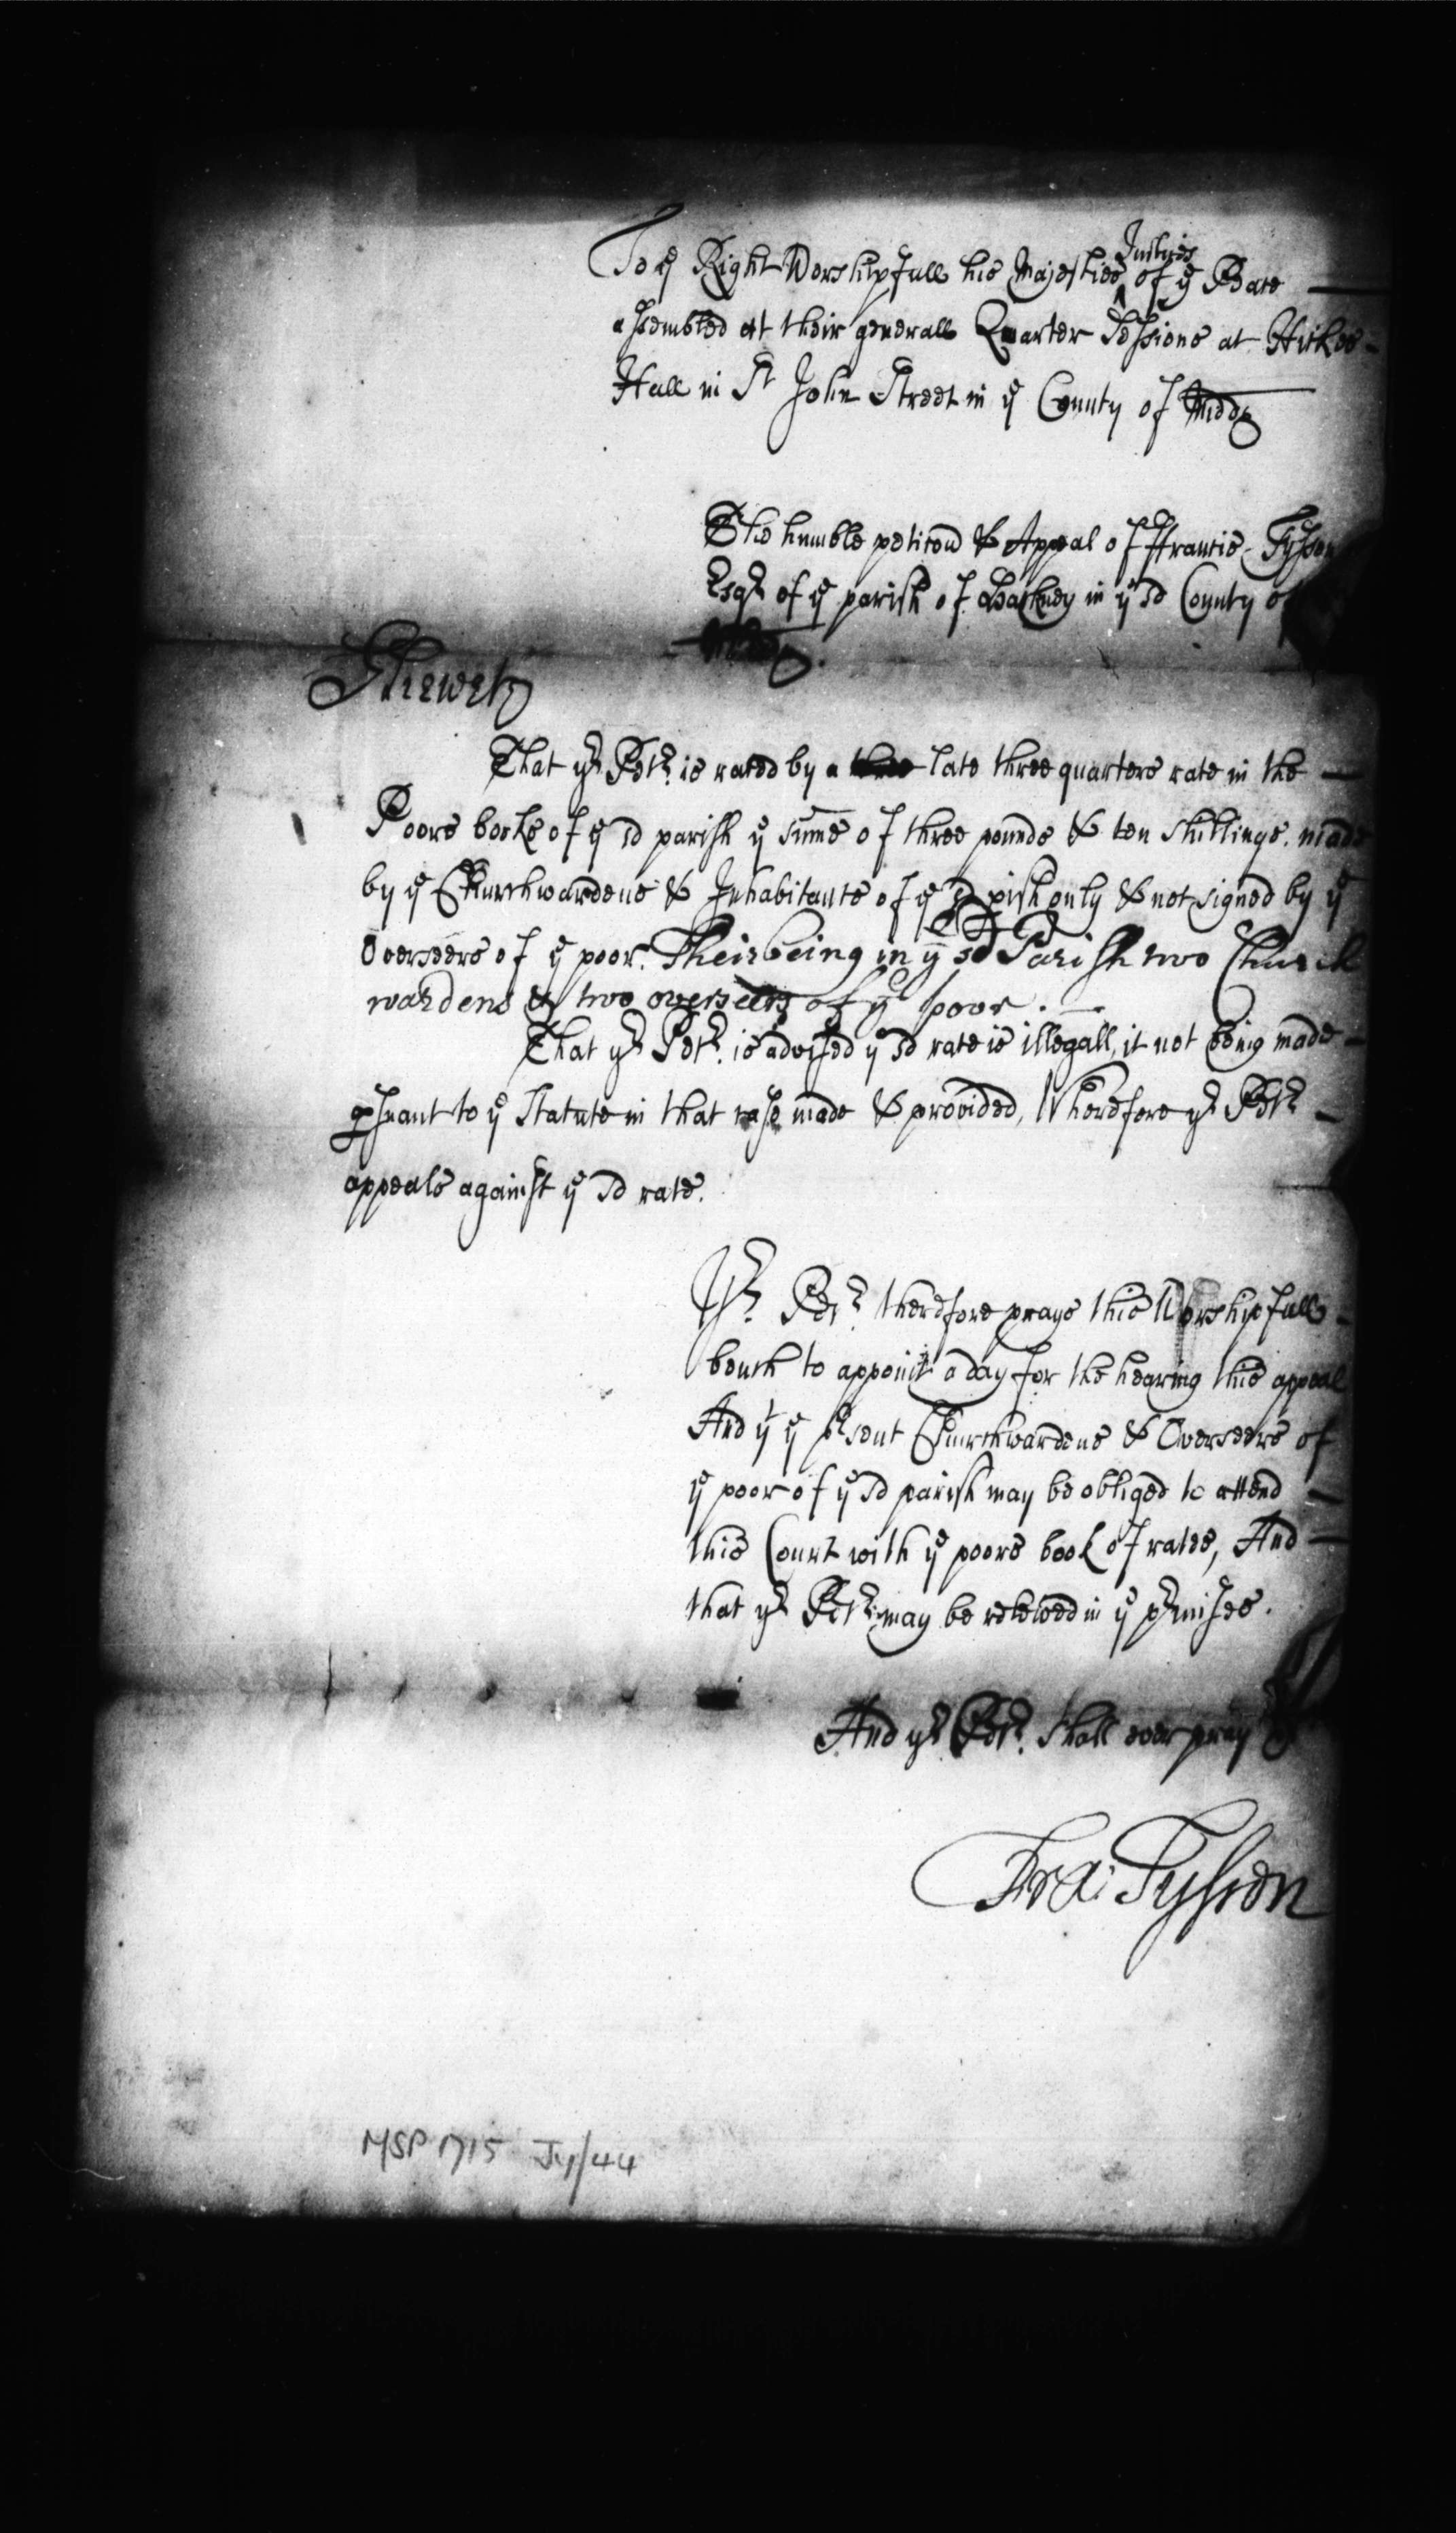 To ye Right Worshipfull his Majesties Justices of ye Peace
assembled att their generall Quarter Sessions at Hickes
Hall in St John Street in ye County of Middx
The humble peticon & Appeal of Ffrancis Tyssen
Esqr of ye parish of Hackney in ye sd County of
Middx.
Sheweth
That yr Petr. is rated by a late three quarters rate in the
Poors booke of ye sd parish ye sume of three pounds & ten shillings. made
by ye Churchwardens & Inhabitants of ye sd pish only & not signed by ye
Overseers of ye poor. Their being in ye sd Parish two Church
wardens & two overseers of ye poor.
That yr Petr. is advised ye sd rate is illegall, it not being made
psuant to ye Statute in that case made & provided, Wherefore yr Petr
appeals against ye sd rate.
Yr. Petr. therefore prays this Worshipfull
bench to appoint a day for the hearing this appeal
And yt ye prsent Churchwardens & Overseers of
ye poor of ye sd parish may be obliged to attend
this Court with ye poors book of rates, And
that yr Petr: may be releived in ye prmisses.
And yr Petr. shall ever pray
Fra: Tyssen
MSP 1715 Jy/44